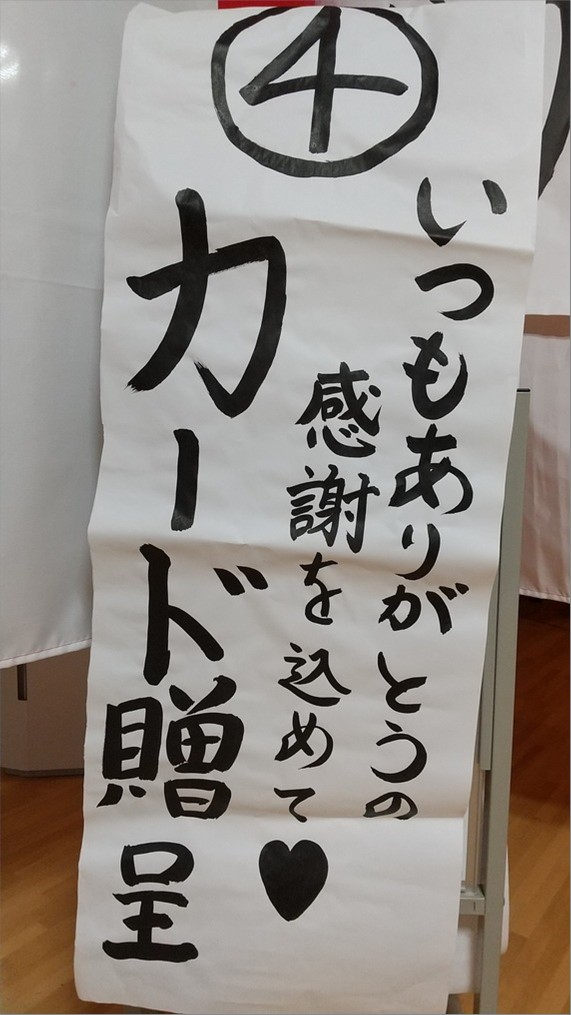 ④
いつもありがとうの
感謝を込めて♥
カード贈呈